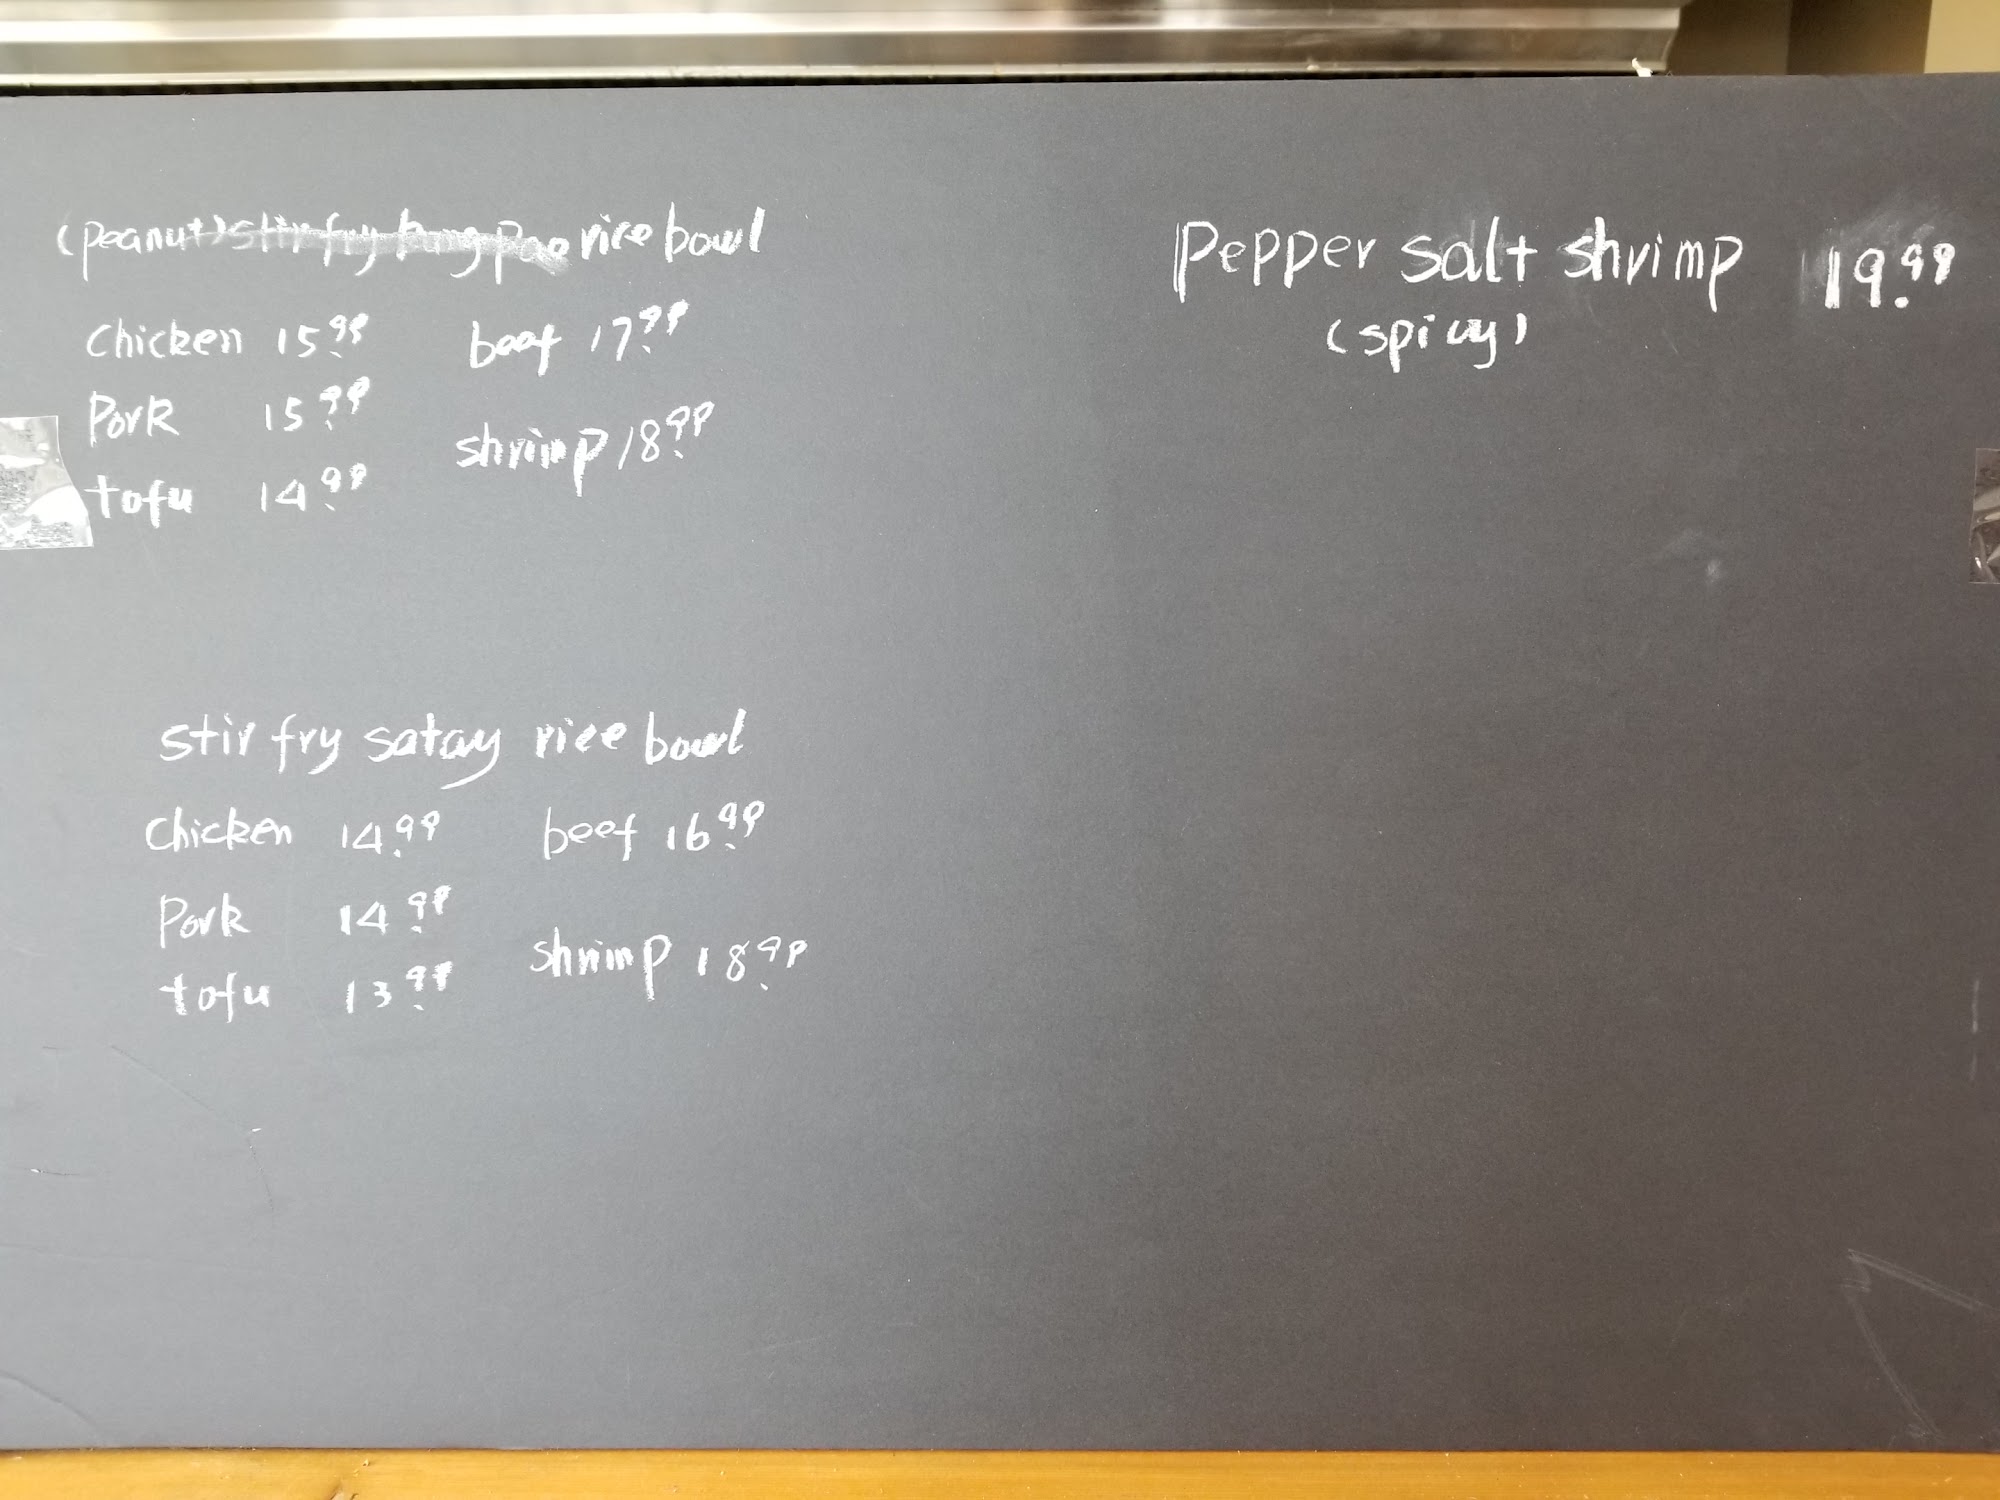 (peanut) stir fry kung pao rice bowl
chicken 15.99 beef 17.99
Pork 15.99
shrimp 18.99
tofu 14.99
stir fry satay rice bowl
chicken 14.99 beef 16.99
Pork 14.99
shrimp 18.99
tofu 13.99
Pepper salt shrimp 19.99
(spicy)